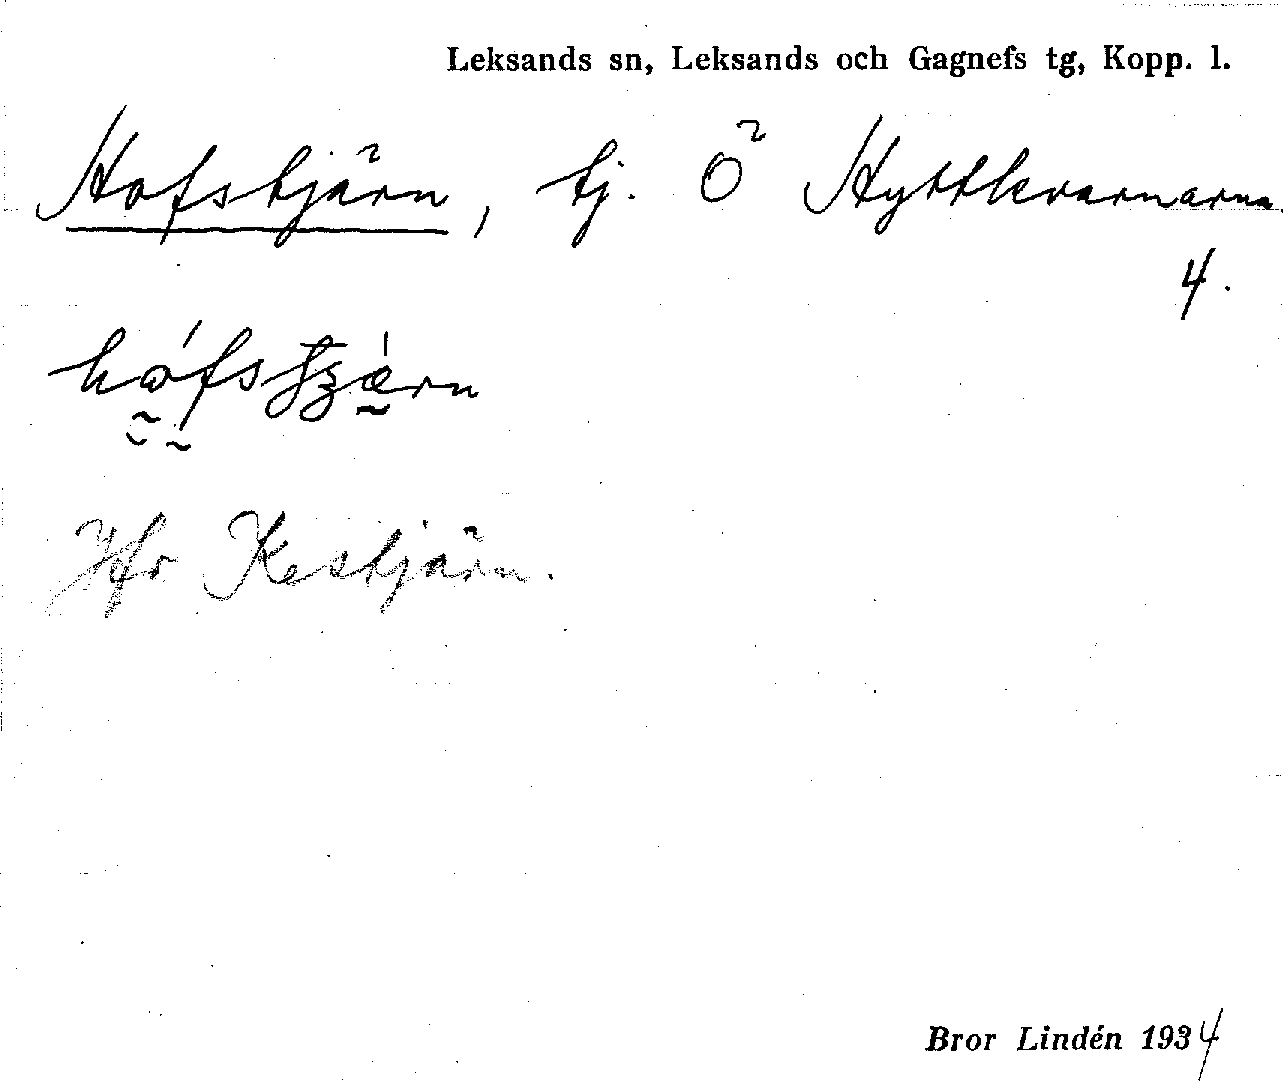 Leksands sn, Leksands och Gagnefs tg, Kopp. l.
Hofstjärn, tj. Ö Hyttkvarnarna
4.
Jfr Kestjärn.
Bror Lindén 1934